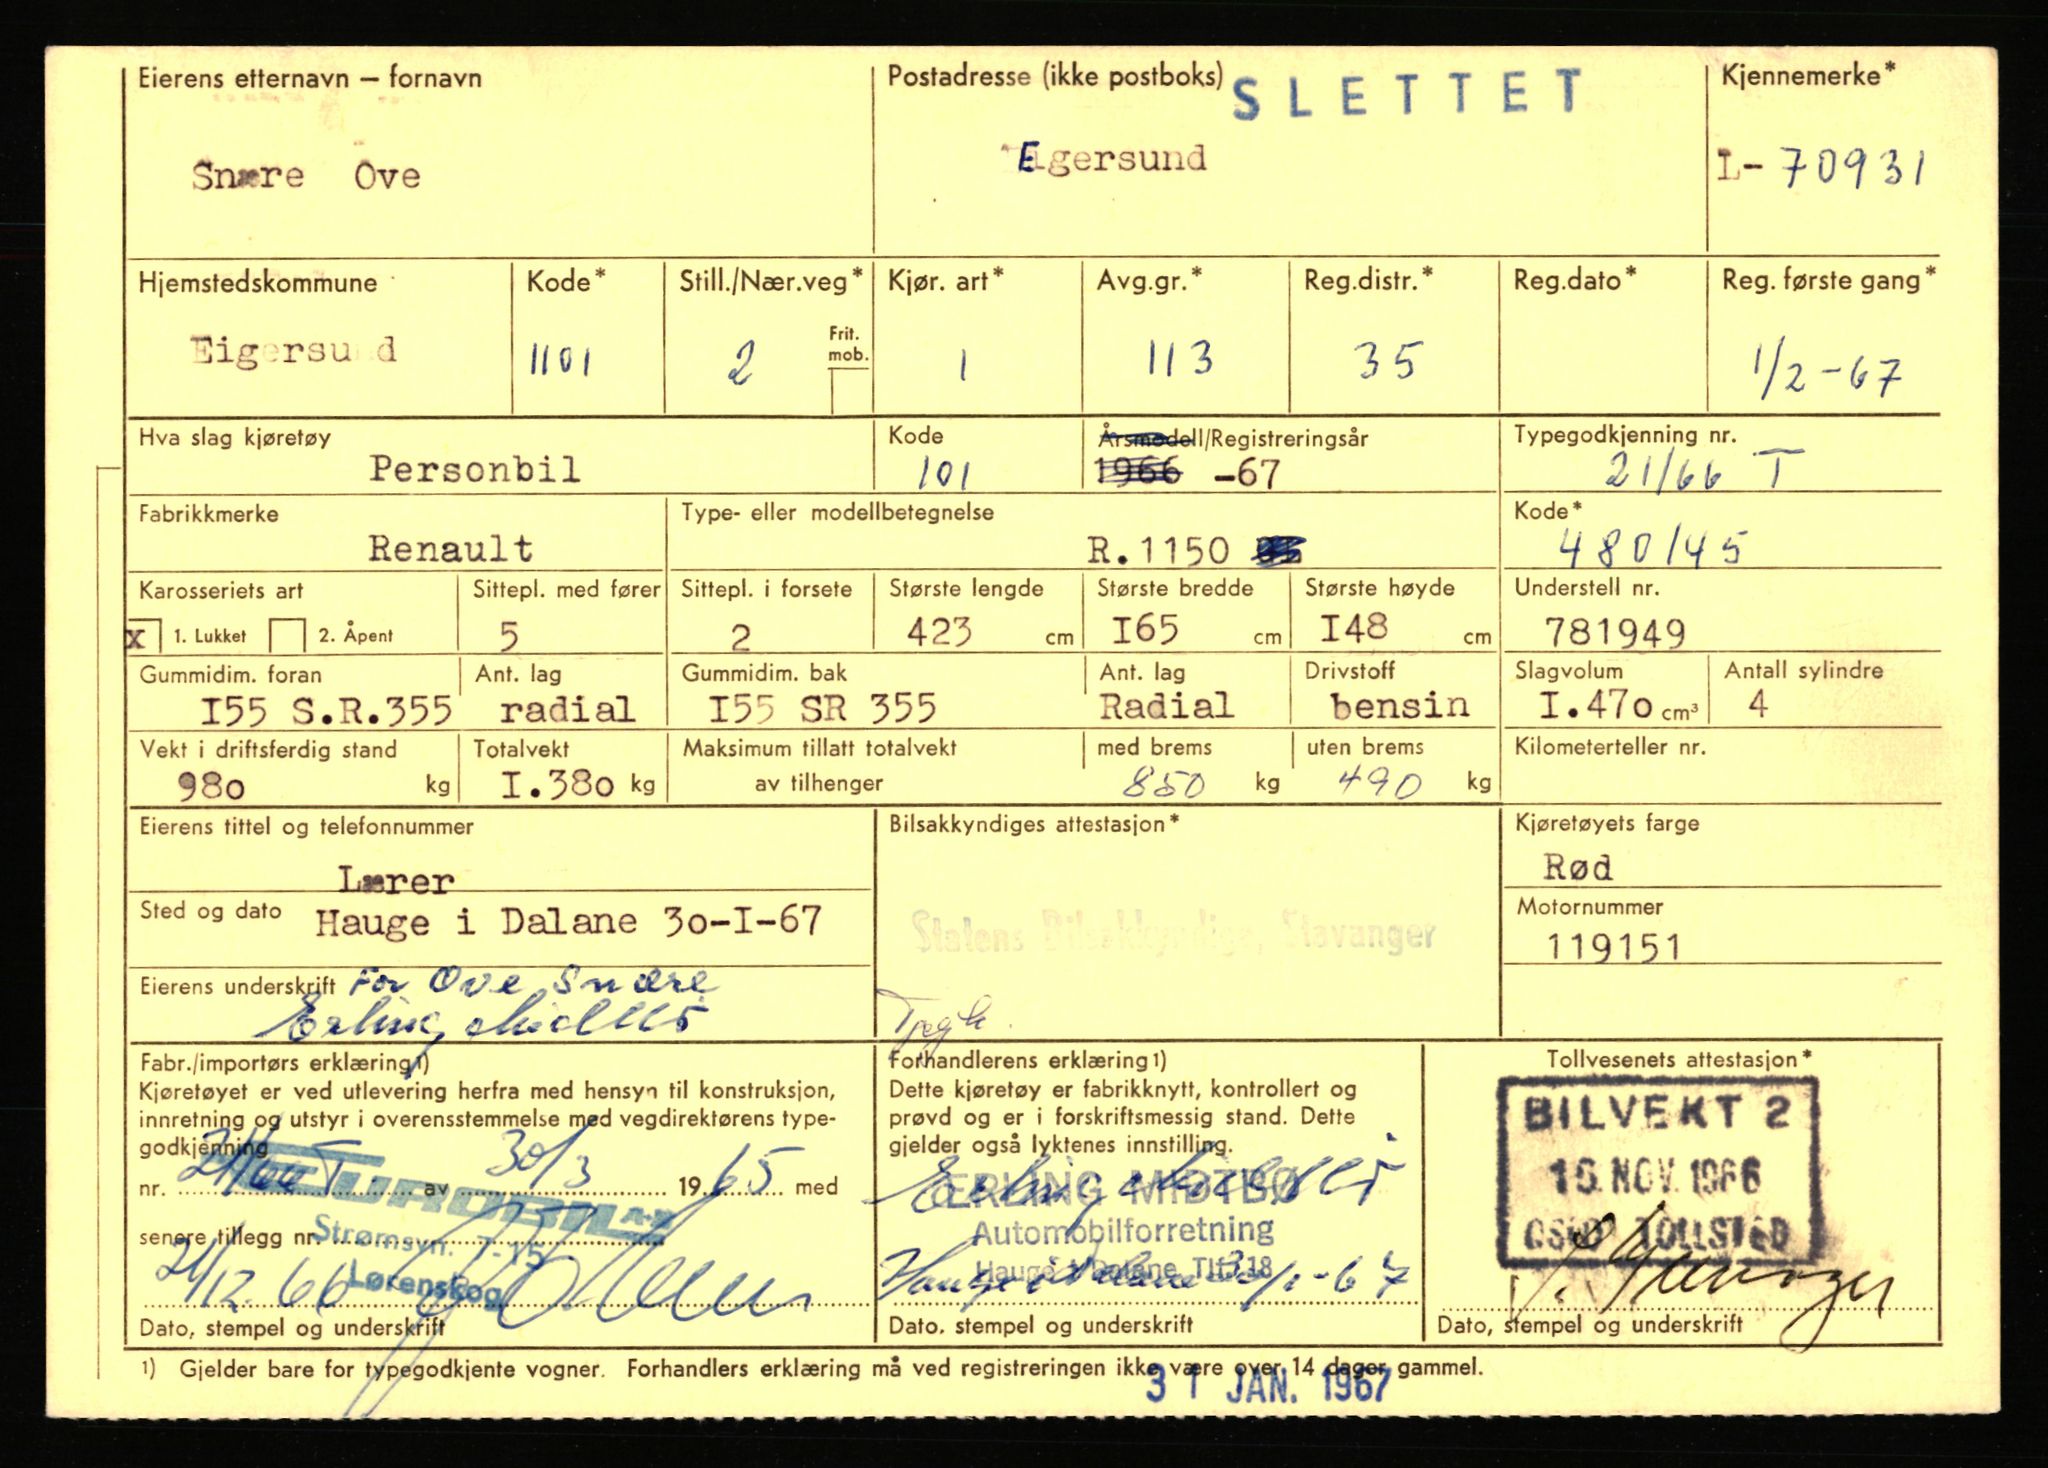 Eierens etternavn – fornavn
Snære Ove
Postadresse (ikke postboks)
SLETTET
Egersund
Kjennemerke*
L-70931
Hjemstedskommune
Eigersund
Kode*
1101
Still./Nær.veg*
2
Frit.
mob.
Kjør. art*
1
Avg.gr.*
113
Reg.distr.*
35
Reg.dato*
Reg. første gang*
1/2-67
Hva slag kjøretøy
Personbil
Kode
101
Årsmodell/Registreringsår
1966 -67
Typegodkjenning nr.
21/66 T
Fabrikkmerke
Renault
Type- eller modellbetegnelse
R.1150
Kode*
480145
Karosseriets art
x 1. Lukket 2. Åpent
Sittepl. med fører
5
Sittepl. i forsete
2
Største lengde
423 cm
Største bredde
I65 cm
Største høyde
I48 cm
Understell nr.
781949
Gummidim. foran
I55 S.R.355
Ant. lag
radial
Gummidim. bak
I55 SR 355
Ant. lag
Radial
Drivstoff
bensin
Slagvolum
I.47o cm³
Antall sylindre
4
Vekt i driftsferdig stand
98o kg
Totalvekt
I.38o kg
Maksimum tillatt totalvekt
av tilhenger
med brems
850 kg
uten brems
490 kg
Kilometerteller nr.
Eierens tittel og telefonnummer
Lærer
Sted og dato Hauge i Dalane 3o-I-67
Eierens underskrift For Ove Snære
Erling Midtbø
Bilsakkyndiges attestasjon*
Statens Bilsakkyndige, Stavanger
Kjøretøyets farge
Rød
Motornummer
119151
Fabr./importørs erklæring1)
Kjøretøyet er ved utlevering herfra med hensyn til konstruksjon,
innretning og utstyr i overensstemmelse med vegdirektørens type-
godkjenning
nr. 21/66 T av 30/3 1965 med
EUROBIL A-S
senere tillegg nr.
Strømsvn. 7-15
Lørenskog
21/12.66
Dato, stempel og underskrift
Forhandlerens erklæring1)
Dette kjøretøy er fabrikknytt, kontrollert og
prøvd og er i forskriftsmessig stand. Dette
gjelder også lyktenes innstilling.
Erling Midtbø
ERLING MIDTBØ
Automobilforretning
Hauge i Dalane Tlf. 318
Hauge i Dalane 30/1-67
Dato. stempel og underskrift
Tollvesenets attestasjon*
BILVEKT 2
16. NOV. 1966
OSLO TOLLSTED
Dato, stempel og underskrift
1) Gjelder bare for typegodkjente vogner. Forhandlers erklæring må ved registreringen ikke være over 14 dager gammel.
31 JAN. 1967